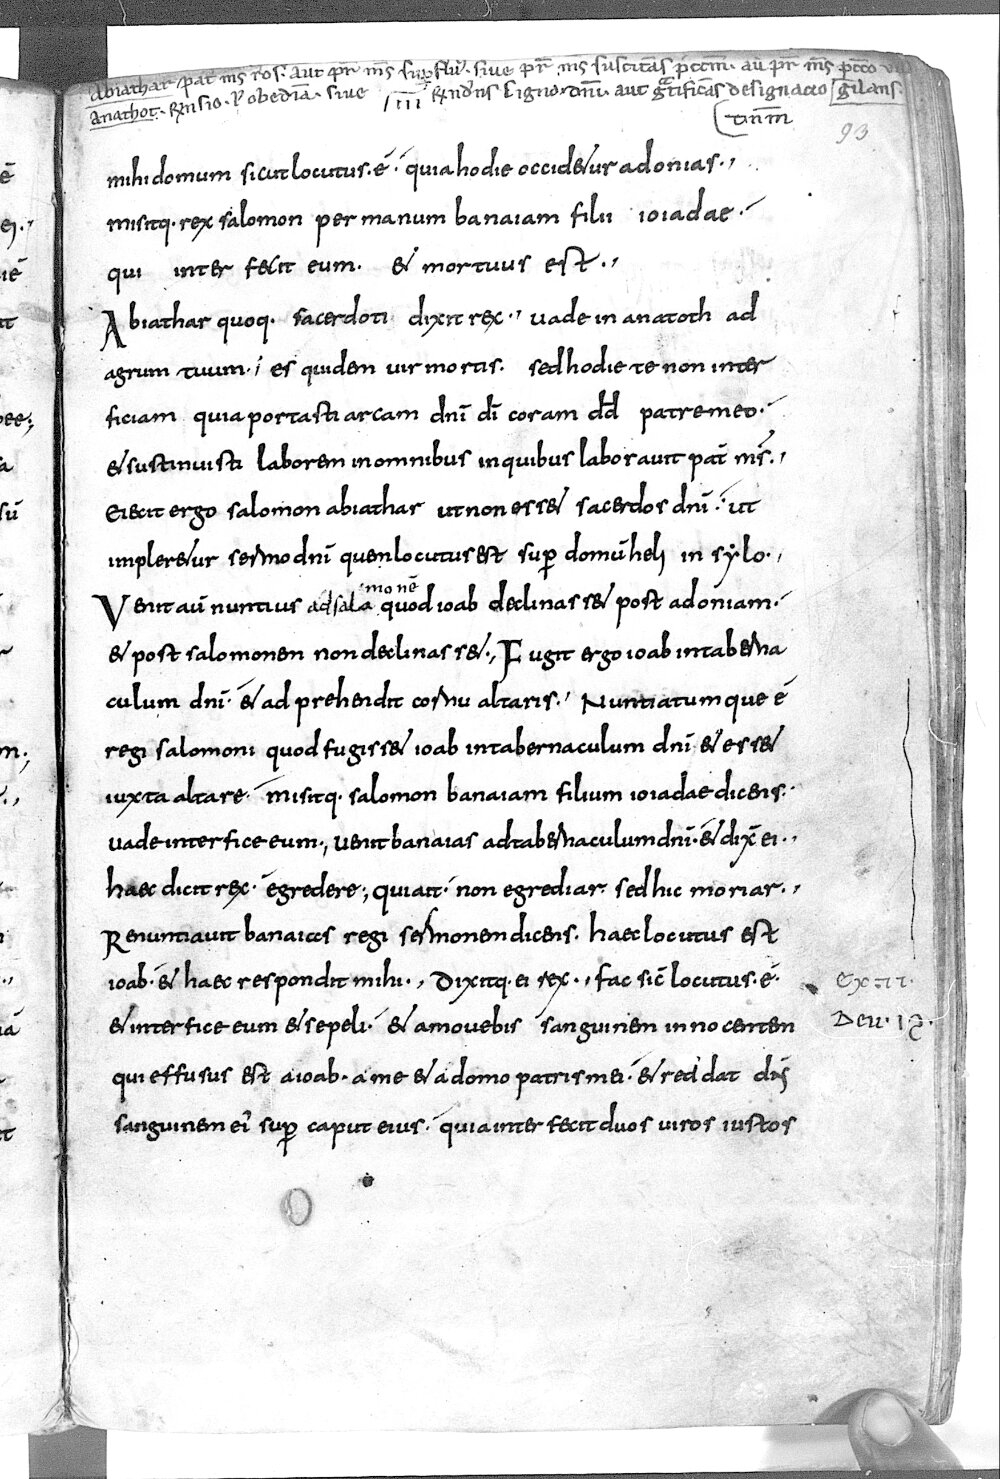 Abiathar pat̄ m̄s ros. aut pr̄ m̄s supflu᷒. sive pr̄ m̄s suscitās aū pr̄ m̄s
anathot. obediā. sive IIII Ligno. dn̄i. aut designatio gilans.
93
mihi domum sicut locutus. ē. quia hodie occidetur adonias.,
misitq. rex salomon per manum banaiam filii ioiadae.
qui inter fecit eum. & mortuus est.,
Abiathar quoq. sacerdoti dixit rex., vade in anatoth ad
agrum tuum. es quidem vir mortis. sed hodie te non inter
ficiam quia portasti arcam dn̄i di̅ coram dd̄ patre meo.
& sustinuisti laborem in omnibus in quibus laboravit pat̄ m̄s.,
Eiecit ergo salomon abiathar ut non esset sacerdos dn̄i. ut
impleretur sermo dn̄i quem locutus est sup̱ domū heli in sylo.,
Venit aū nuntius ad sala monē quod ioab declinasset post adoniam.
& post salomonem non declinasset., Fugit ergo ioab in taberna
culum dn̄i. & adprehendit cornu altaris., Nuntiatumque ē
regi salomoni quod fugisset ioab in tabernaculum dn̄i & esset
iuxta altare. misitq. salomon banaiam filium ioiadae dicens.
vade interfice eum., venit banaias ad tabernaculum dn̄i. & dix̄ ei.,
haec dicit rex. egredere., qui ait. non egrediar. sed hic moriar.,
Renuntiavit banaias regi sermonem dicens. haec locutus est
ioab. & haec respondit mihi., Dixitq. ei rex., fac sic̄ locutus. ē.
& interfice eum & sepeli. & amovebis sanguinem innocentem
qui effusus est a ioab. a me & a domo patris mei. & reddat dn̄s
sanguinem ei᷒ sup̱ caput eius. quia interfecit duos viros iustos